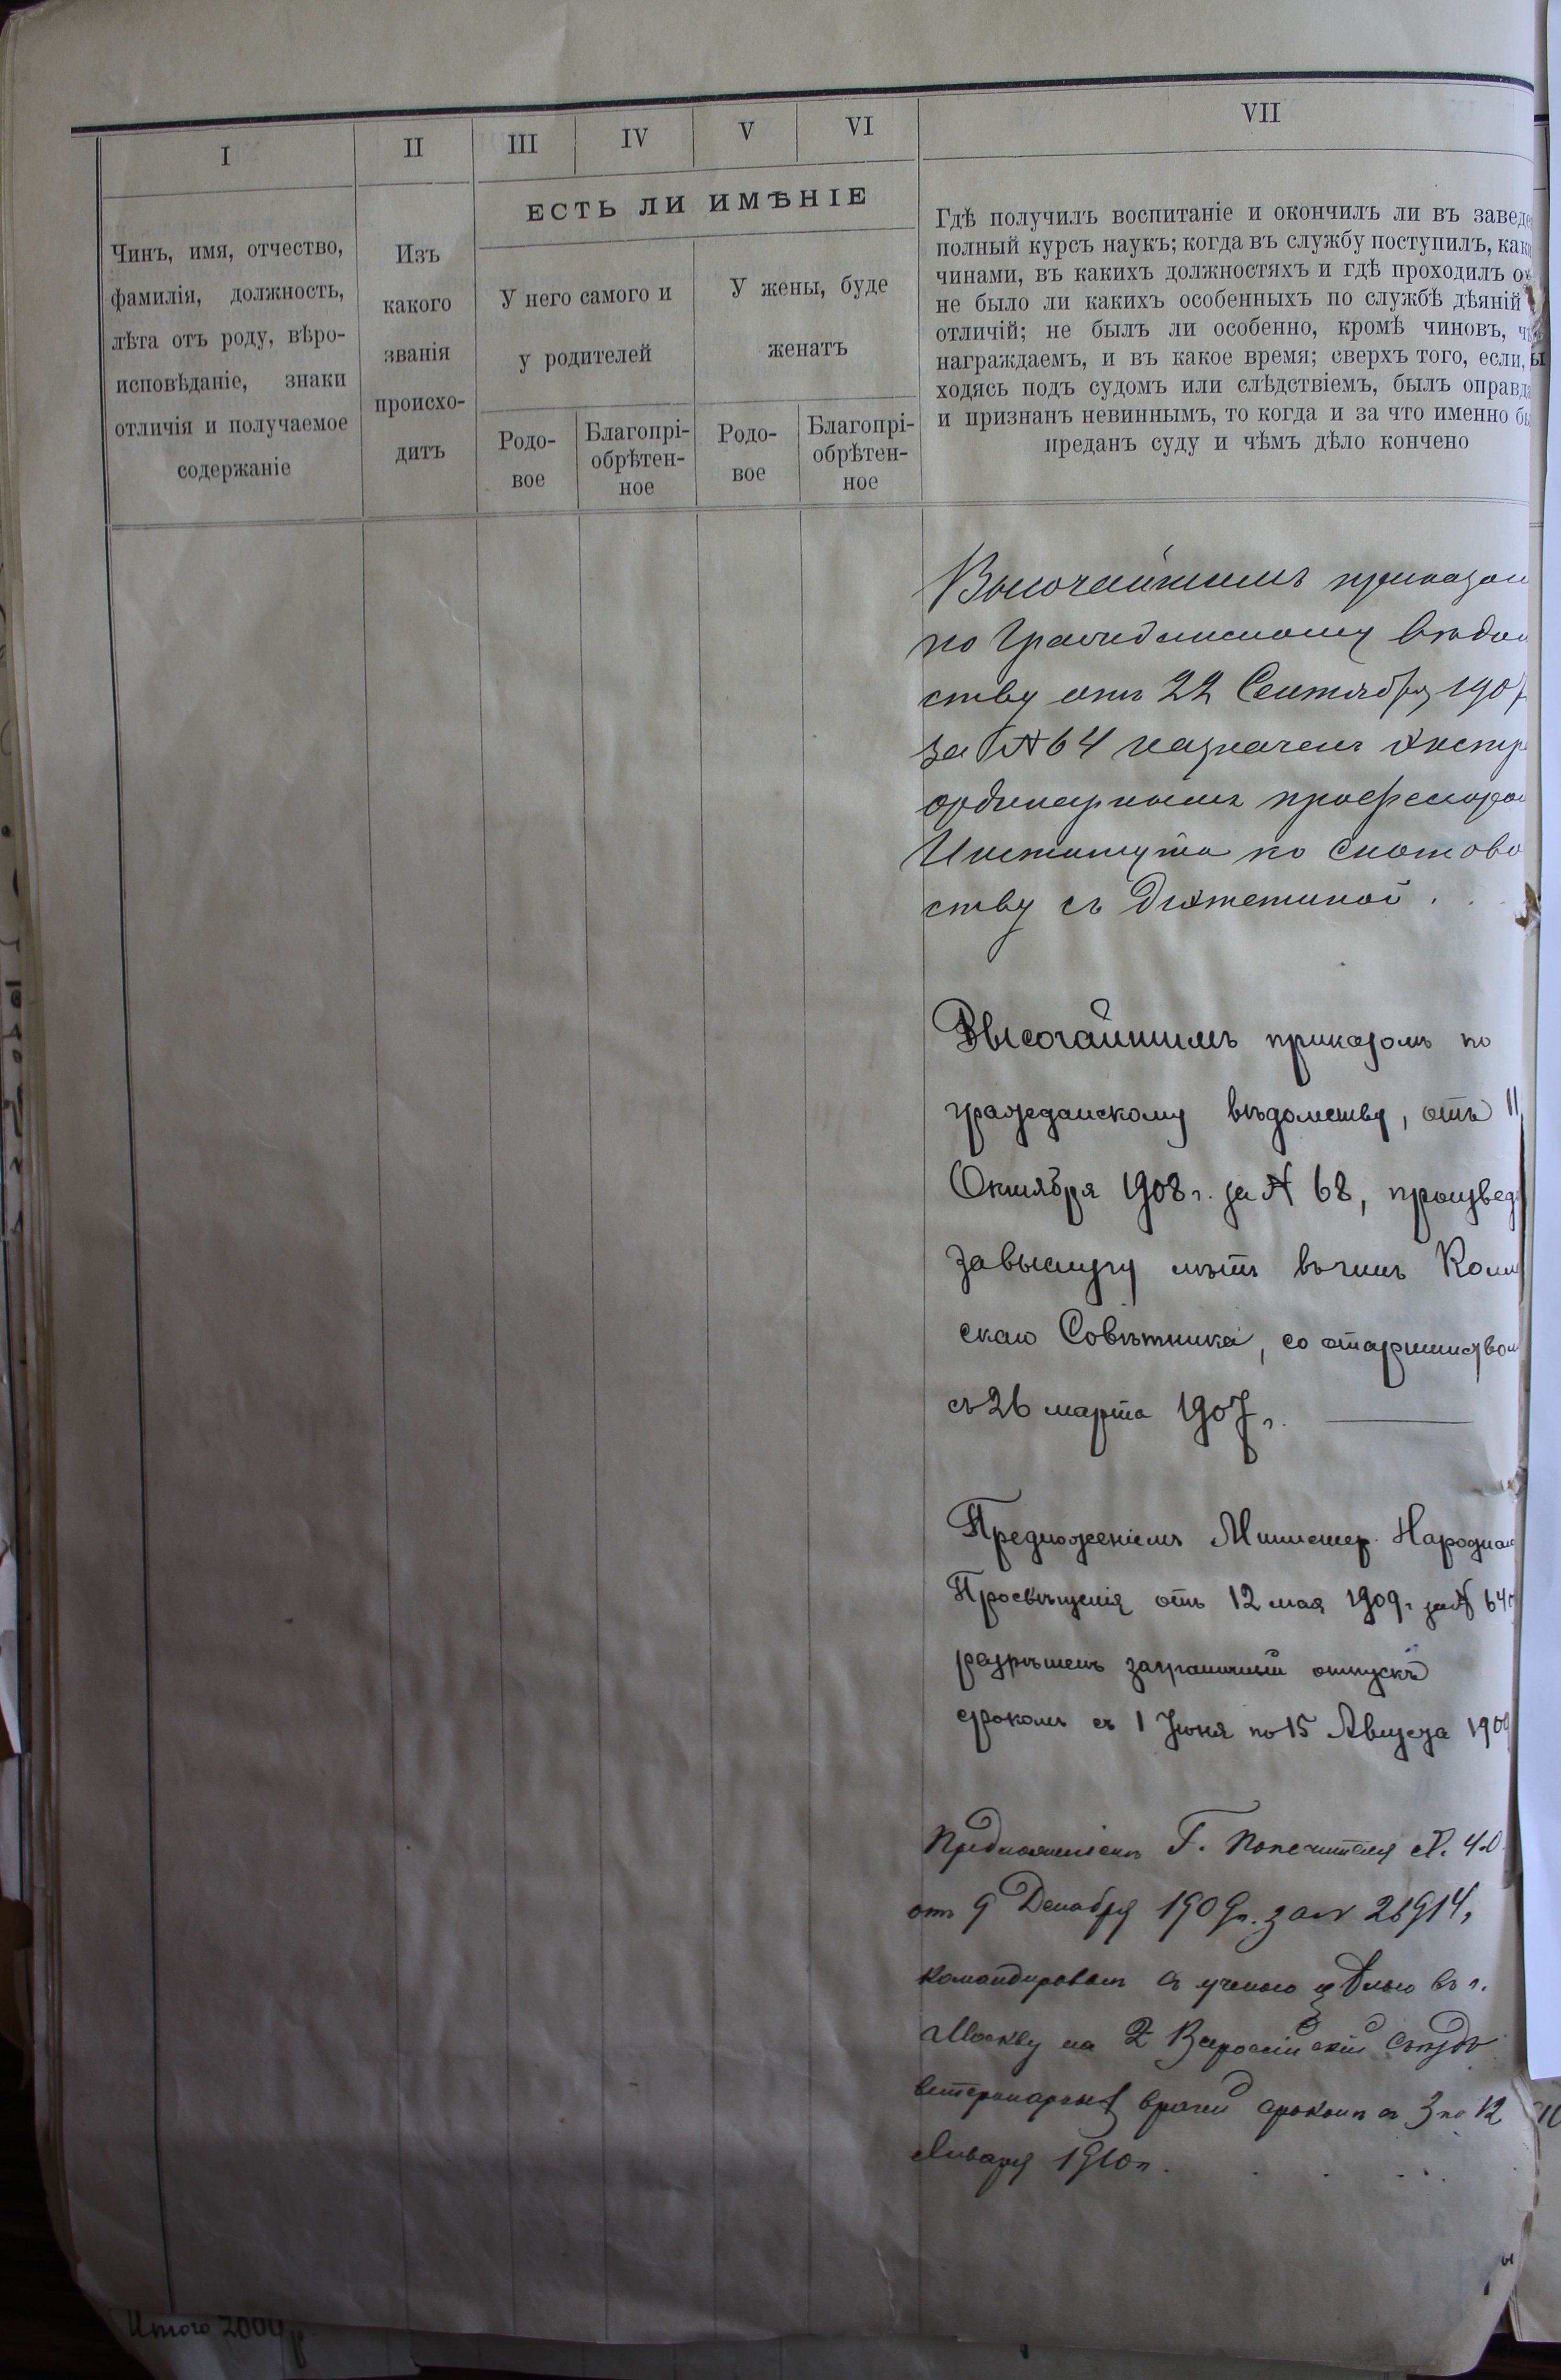 I
II
III
IV
V
VI
VII
Чинъ, имя, отчество,
фамилія, должность,
лѣта отъ роду, вѣро-
исповѣданіе, знаки
отличія и получаемое
содержаніе
Изъ
какого
званія
происхо-
дитъ
ЕСТЬ ЛИ ИМѢНІЕ
У него самого и
у родителей
У жены, буде
женатъ
Родо-
вое
Благопрі-
обрѣтен-
ное
Родо-
вое
Благопрі-
обрѣтен-
ное
Гдѣ получилъ воспитаніе и окончилъ ли въ завед
полный курсъ наукъ; когда въ службу поступилъ, как
чинами, въ какихъ должностяхъ и гдѣ проходилъ о
не было ли какихъ особенныхъ по службѣ дѣяній
отличій; не былъ ли особенно, кромѣ чиновъ, ч
награждаемъ, и въ какое время; сверхъ того, если,
ходясь подъ судомъ или слѣдствіемъ, былъ оправд
и признанъ невиннымъ, то когда и за что именно б
преданъ суду и чѣмъ дѣло кончено
Высочайшимъ приказом
по Гражданскому вѣдом
ству отъ 22 Сентября 190
за № 64 назначенъ экстр
ординарнымъ профессоро
Института по скотово
ству съ діэтетикой.
Высочайшимъ приказомъ по
гражданскому вѣдомству, отъ 11
Октября 1908 г. за № 68, произвед
за выслугу лѣтъ въ чинъ Колл
скаго Совѣтника, со старшинством
съ 26 марта 1907 г.
Предложеніемъ Министер. Народнаг
Просвѣщенія отъ 12 мая 1909 г. за № 640
разрѣшенъ заграничный отпускъ
срокомъ съ 1 Іюня по 15 Августа 1909
Предложеніемъ Г. Попечителя
отъ 9 Декабря 1909 г. за № 26914,
командированъ съ ученою цѣлью въ г.
Москву на 2 Всероссійскій съѣздъ
ветеринарныхъ врачей срокомъ съ 3 по 12
Января 1910 г.
Итого 2000 р